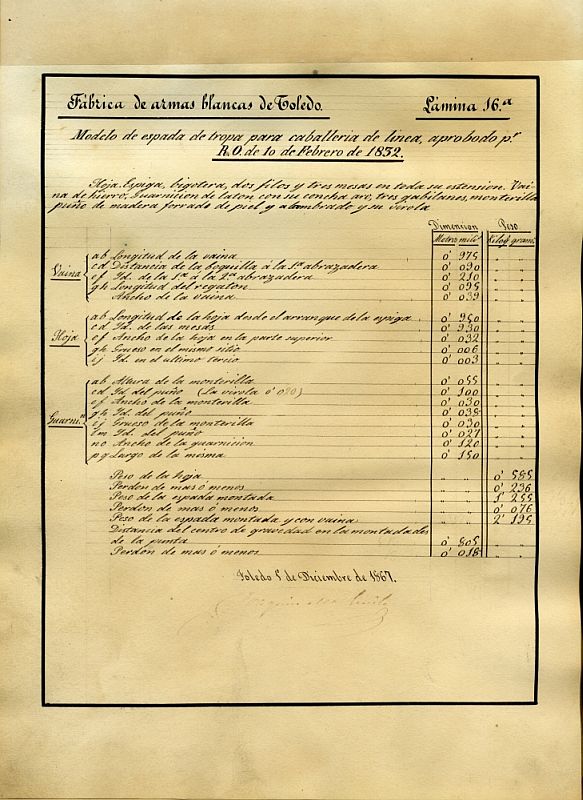 Fábrica de armas blancas de Toledo. Lámina 16.ª
Modelo de espada de tropa para caballeria de linea, aprobado p.r
R.O. de 10 de Febrero de 1832.
Hoja. Espiga, bigotera, dos filos y tres mesas en toda su estension. Vai-
na de hierro, Guarnicion de laton con su concha aro, tres gabilanes, monterilla
puño de madera forrado de piel y alambrado y su virola
Dimension Peso
Metro mil.s Kilog. gram.s
Vaina
ab Longitud de la vaina 0' 975 " "
cd Distancia de la boquilla á la 1.ª abrazadera 0' 090 " "
ef Id. de la 1.ª á la 2.ª abrazadera 0' 210 " "
gh Longitud del regaton 0' 095 " "
Ancho de la vaina 0' 039 " "
Hoja
ab Longitud de la hoja desde el arranque de la espiga 0' 950 " "
cd Id. de las mesas 0' 930 " "
ef Ancho de la hoja en la parte superior 0' 032 " "
gh Grueso en el mismo sitio 0' 006 " "
ij Id. en el ultimo tercio 0' 003 " "
Guarni.n
ab Altura de la monterilla 0' 055 " "
cd Id. del puño (La virola 0' 020) 0' 100 " "
ef Ancho de la monterilla 0' 030 " "
gh Id. del puño 0' 038 " "
ij Grueso de la monterilla 0' 030 " "
lm Id. del puño 0' 027 " "
no Ancho de la guarnicion 0' 120 " "
pq Largo de la misma 0' 150 " "
Peso de la hoja " " 0' 585
Perdon de mas ó menos " " 0' 236
Peso de la espada montada " " 1' 255
Perdon de mas ó menos " " 0' 076
Peso de la espada montada y con vaina " " 2' 195
Distancia del centro de gravedad en la montada desde
de la punta 0' 805 " "
Perdon de mas ó menos 0' 018 " "
Toledo 5 de Diciembre de 1867.